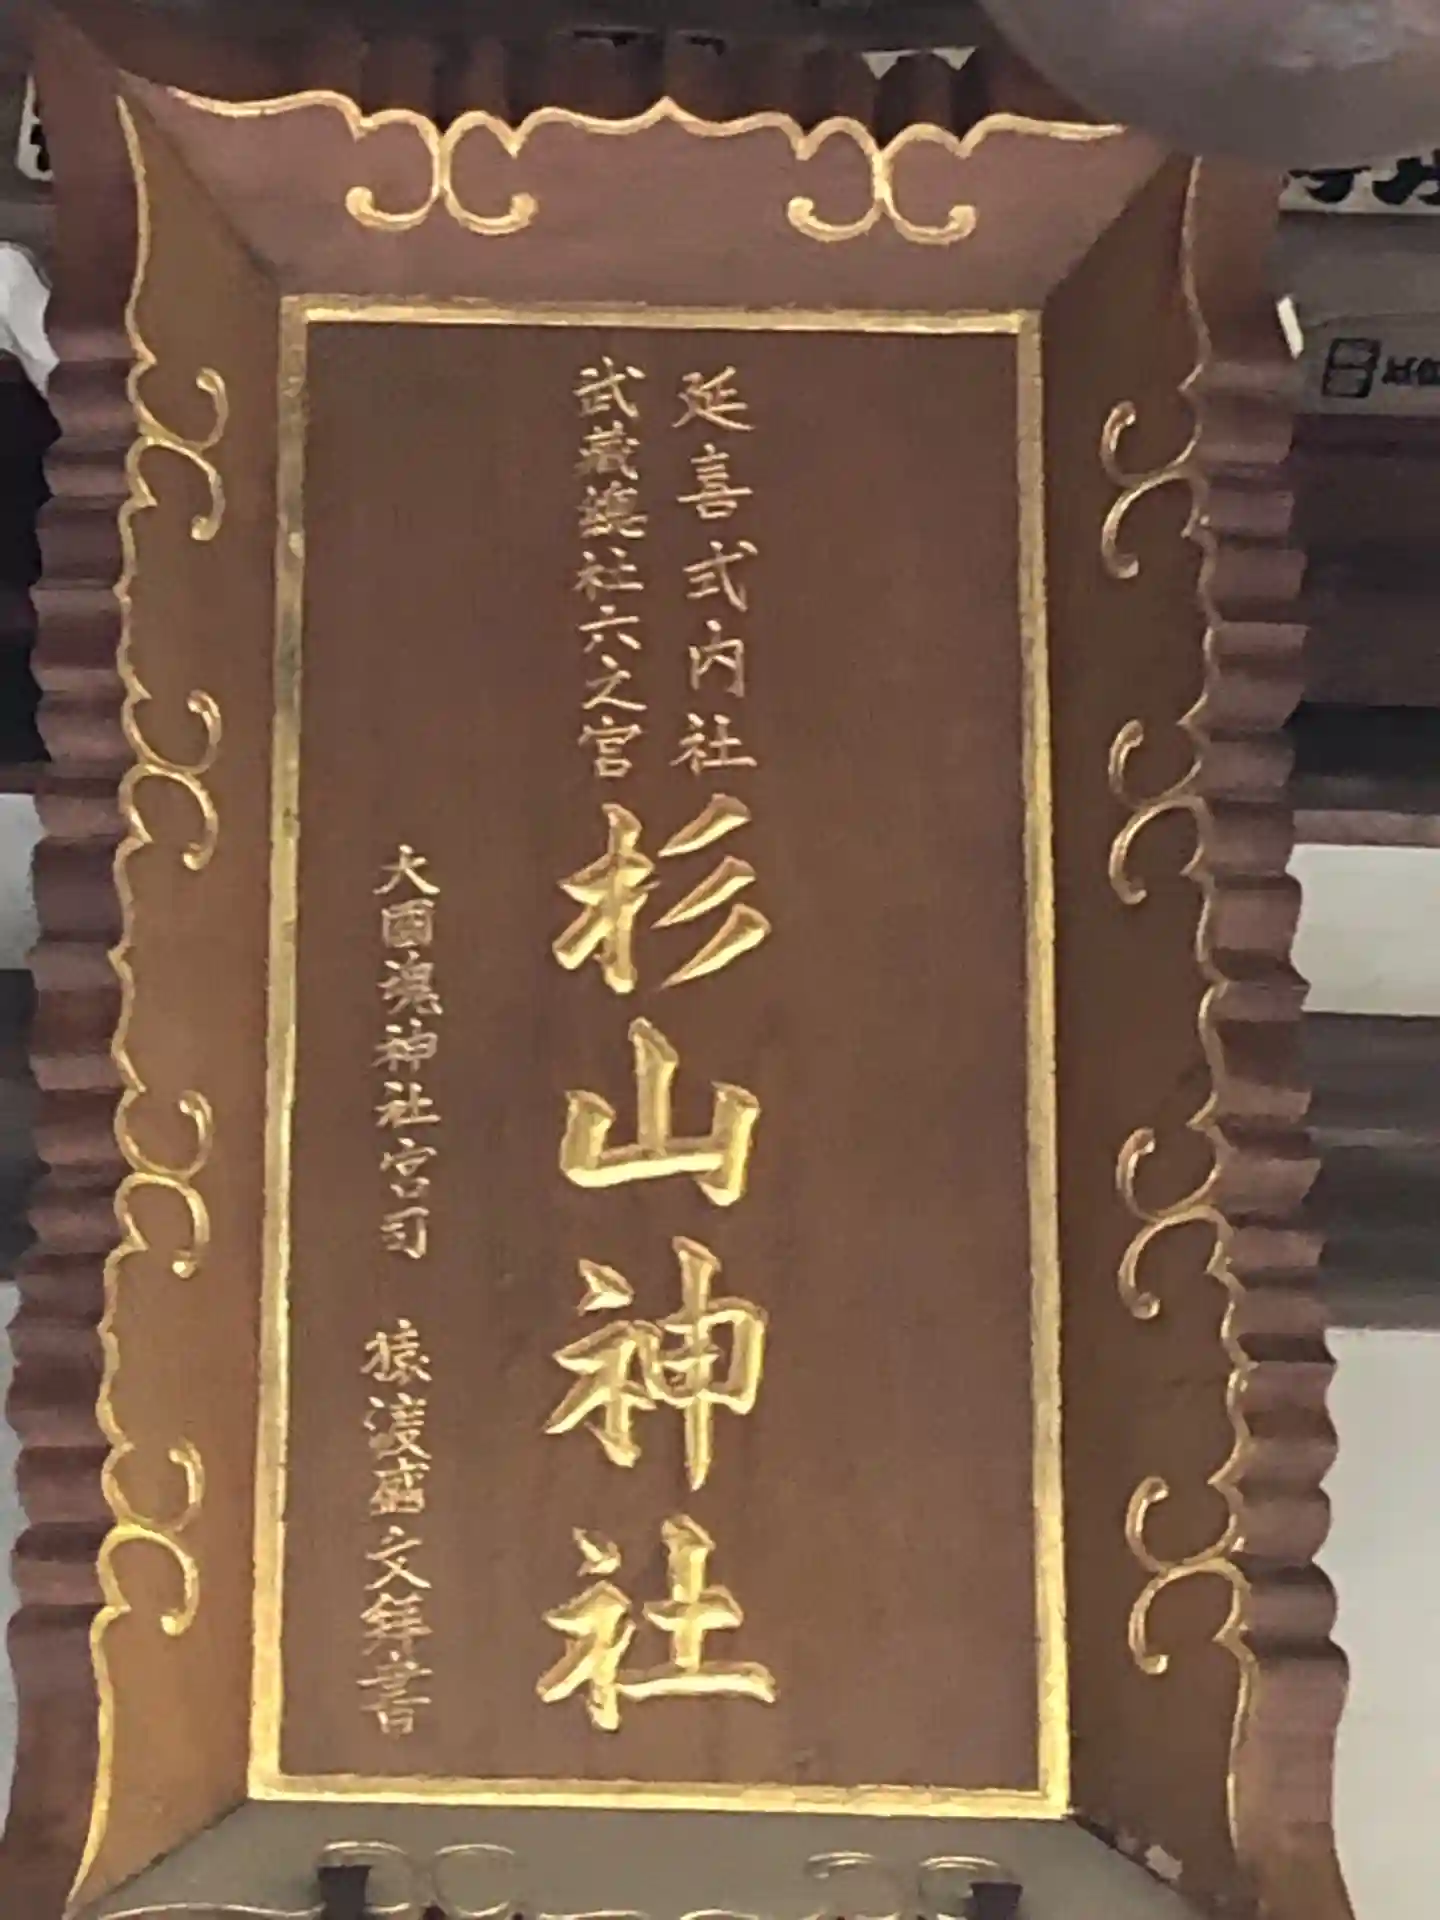 延喜式内社
武蔵総社六之宮
杉山神社
大國魂神社宮司 猿渡盛文拜書